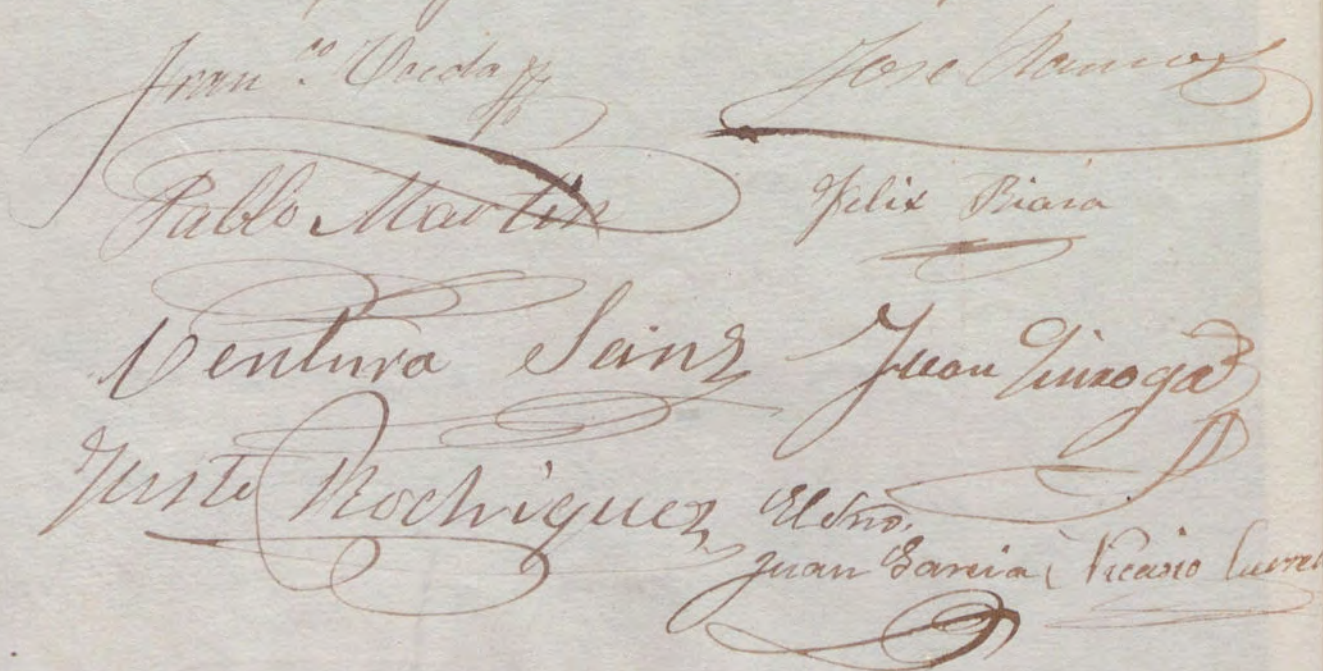 Fran.co José Ramos
Pablo Martin Felix Riaza
Ventura Sainz Juan Quiroga
Justo Rodriguez El Srio.
Juan Garcia Vicario